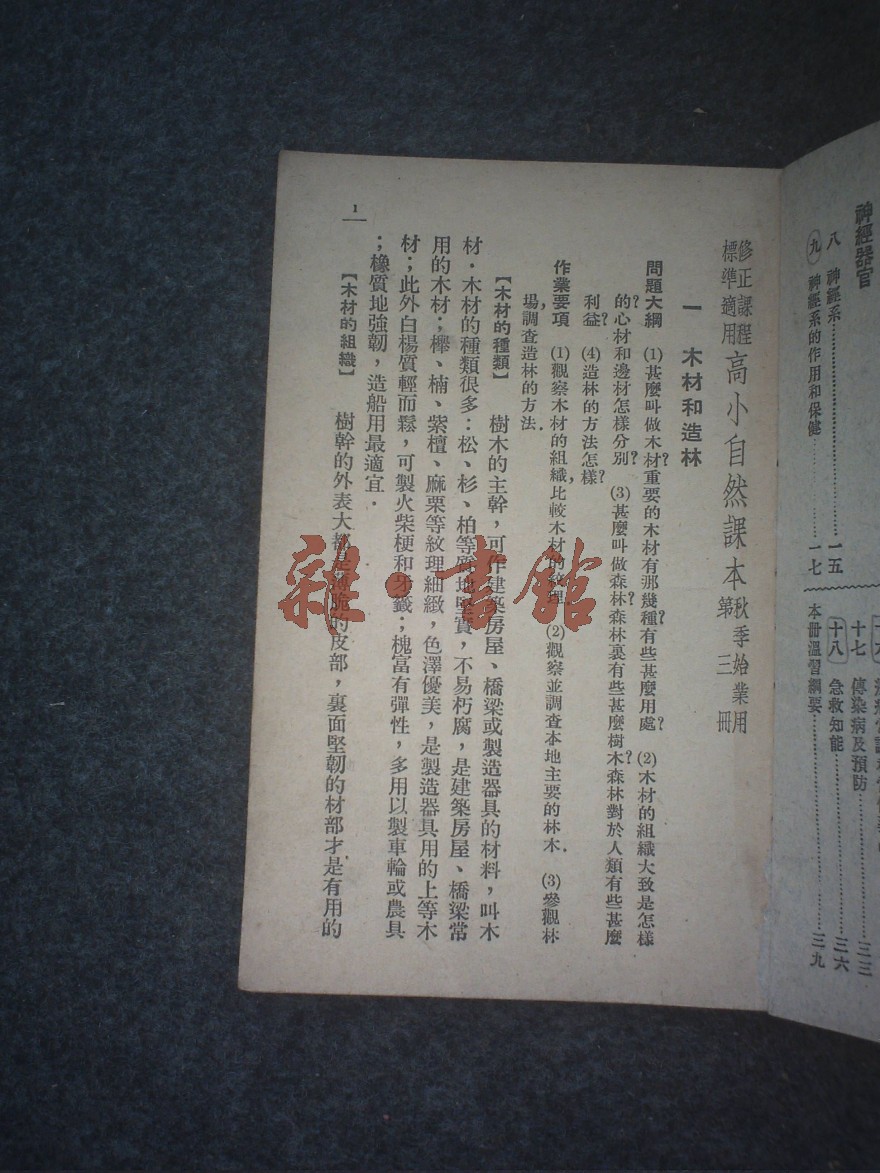 神經器官
八 神經系……一五
九 神經系的作用和保健……一七
十七 傳染病及預防……三三
十八 急救知能……三六
本冊溫習綱要……三九
修正課程標準適用 高小自然課本 秋季始業用 第三冊
一 木材和造林
問題大綱 (1)甚麼叫做木材?重要的木材有那幾種?有些甚麼用處? (2)木材的組織大致是怎樣
的?心材和邊材怎樣分別? (3)甚麼叫做森林?森林裏有些甚麼樹木?森林對於人類有些甚麼
利益? (4)造林的方法怎樣?
作業要項 (1)觀察木材的組織,比較木材的紋理. (2)觀察並調查本地主要的林木. (3)參觀林
場,調查造林的方法.
【木材的種類】 樹木的主幹,可作建築房屋、橋梁或製造器具的材料,叫木
材.木材的種類很多:松、杉、柏等質地堅實,不易朽腐,是建築房屋、橋梁常
用的木材;櫸、楠、紫檀、麻栗等紋理細緻,色澤優美,是製造器具用的上等木
材;此外白楊質輕而鬆,可製火柴梗和牙籤;槐富有彈性,多用以製車輪或農具
;橡質地強韌,造船用最適宜.
【木材的組織】 樹幹的外表大都是薄脆的皮部,裏面堅韌的材部才是有用的
1
雜·書館